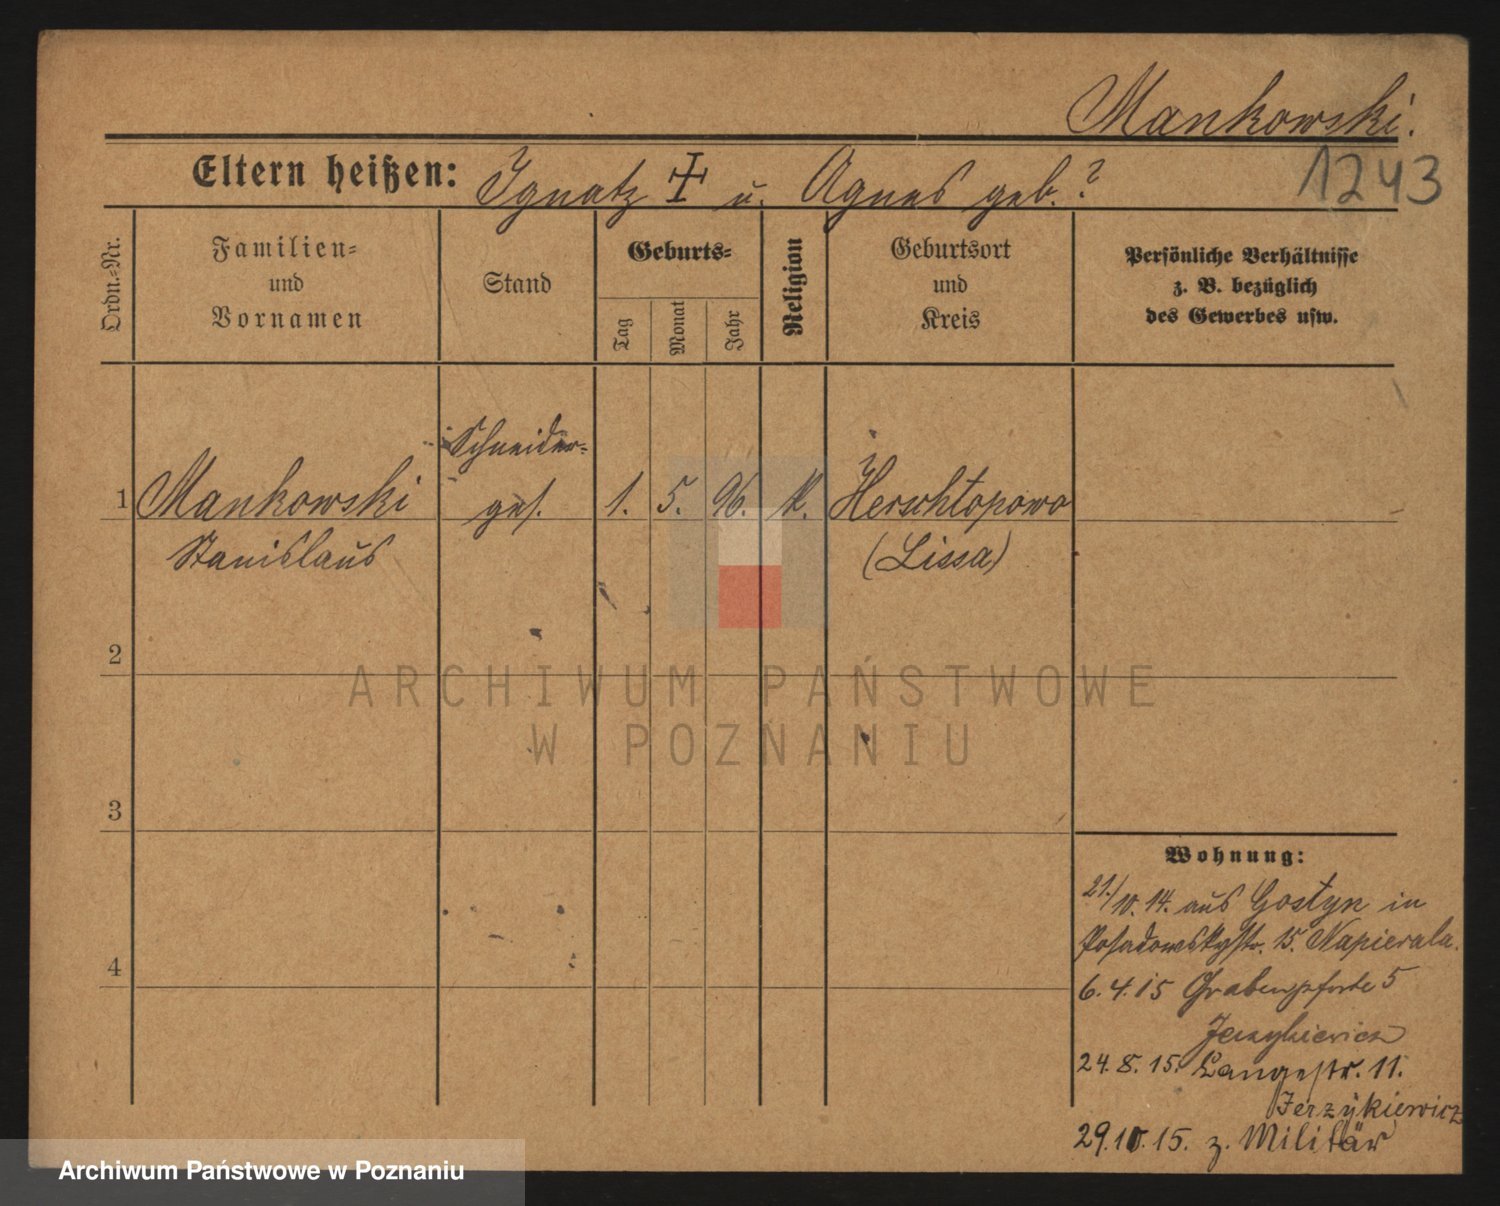 Mankowski.
Eltern heißen: Ignatz u. Agnes geb. ?
1243
Ordn.-Nr.
Familien-
und
Vornamen
Stand
Geburts-
Tag
Monat
Jahr
Religion
Geburtsort
und
Kreis
Persönliche Verhältnisse
z. B. bezüglich
des Gewerbes usw.
Schneider-
1 Mankowski ges. 1. 5. 96. k. Herschtopowo
Stanislaus (Lissa)
2
3
4
ARCHIWUM PAŃSTWOWE
W POZNANIU
Wohnung:
21./10. 14. aus Gostyn in
Posadowskystr. 15. Napierala.
6. 4. 15 Grabenpforte 5
Jerzykiewicz
24. 8. 15. Langestr. 11.
Jerzykiewicz
29. 10. 15. z. Militär
Archiwum Państwowe w Poznaniu